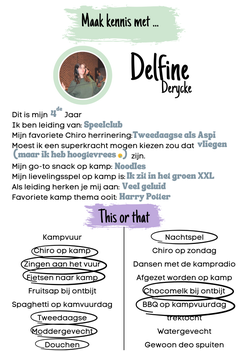 Maak kennis met ...
Delfine
Derycke
Dit is mijn 4de Jaar
Ik ben leiding van: Speelclub
Mijn favoriete Chiro herrinering: Tweedaagse als Aspi
Moest ik een superkracht mogen kiezen zou dat vliegen
(maar ik heb hoogievrees 😢) zijn.
Mijn go-to snack op kamp: Noodles
Mijn lievelingsspel op kamp is: Ik zit in het groen XXL
Als leiding herken je mij aan: Veel geluid
Favoriete kamp thema ooit: Harry Potter
This or that
Kampvuur
Chiro op kamp
Zingen aan het vuur
Fietsen naar kamp
Fruitsap bij ontbijt
Spaghetti op kamvuurdag
Tweedaagse
Moddergevecht
Douchen
Nachtspel
Chiro op zondag
Dansen met de kampradio
Afgezet worden op kamp
Chocomelk bij ontbijt
BBQ op kampvuurdag
trektocht
Watergevecht
Gewoon deo spuiten